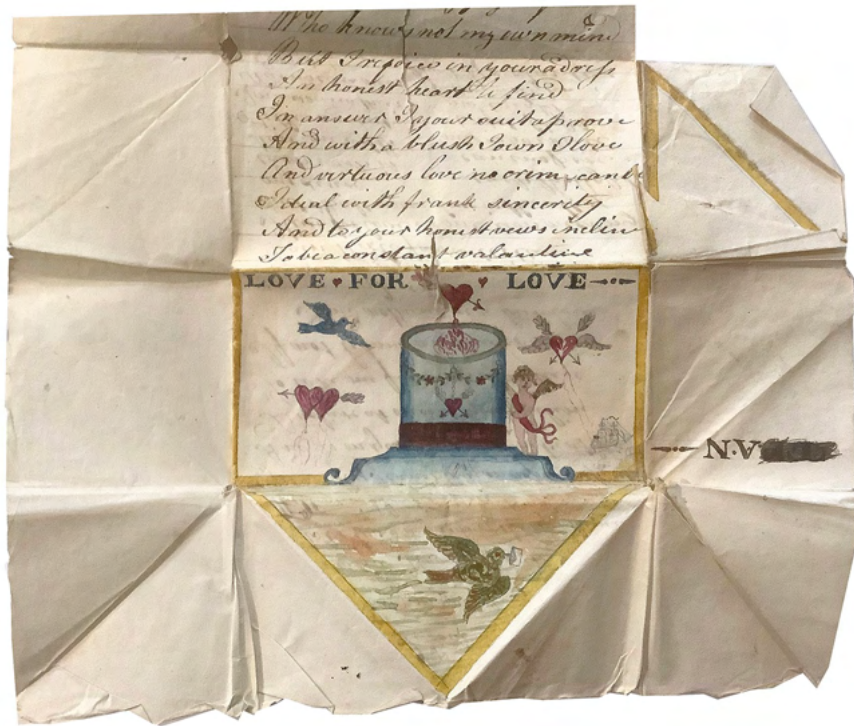 Who knows not my own mind
But I rejoice in your adress
An honest heart to find
In answer I your suit aprove
And with a blush I own I love
And virtuous love no crim can b
I deal with frank sincerity
And to your honest vows inclin
To be a constant valantine
LOVE FOR LOVE
N.V